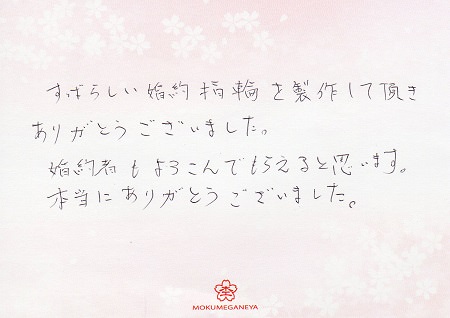 すばらしい婚約指輪を製作して頂き
ありがとうございました。
婚約者もよろこんでもらえると思います。
本当にありがとうございました。
MOKUMEGANEYA